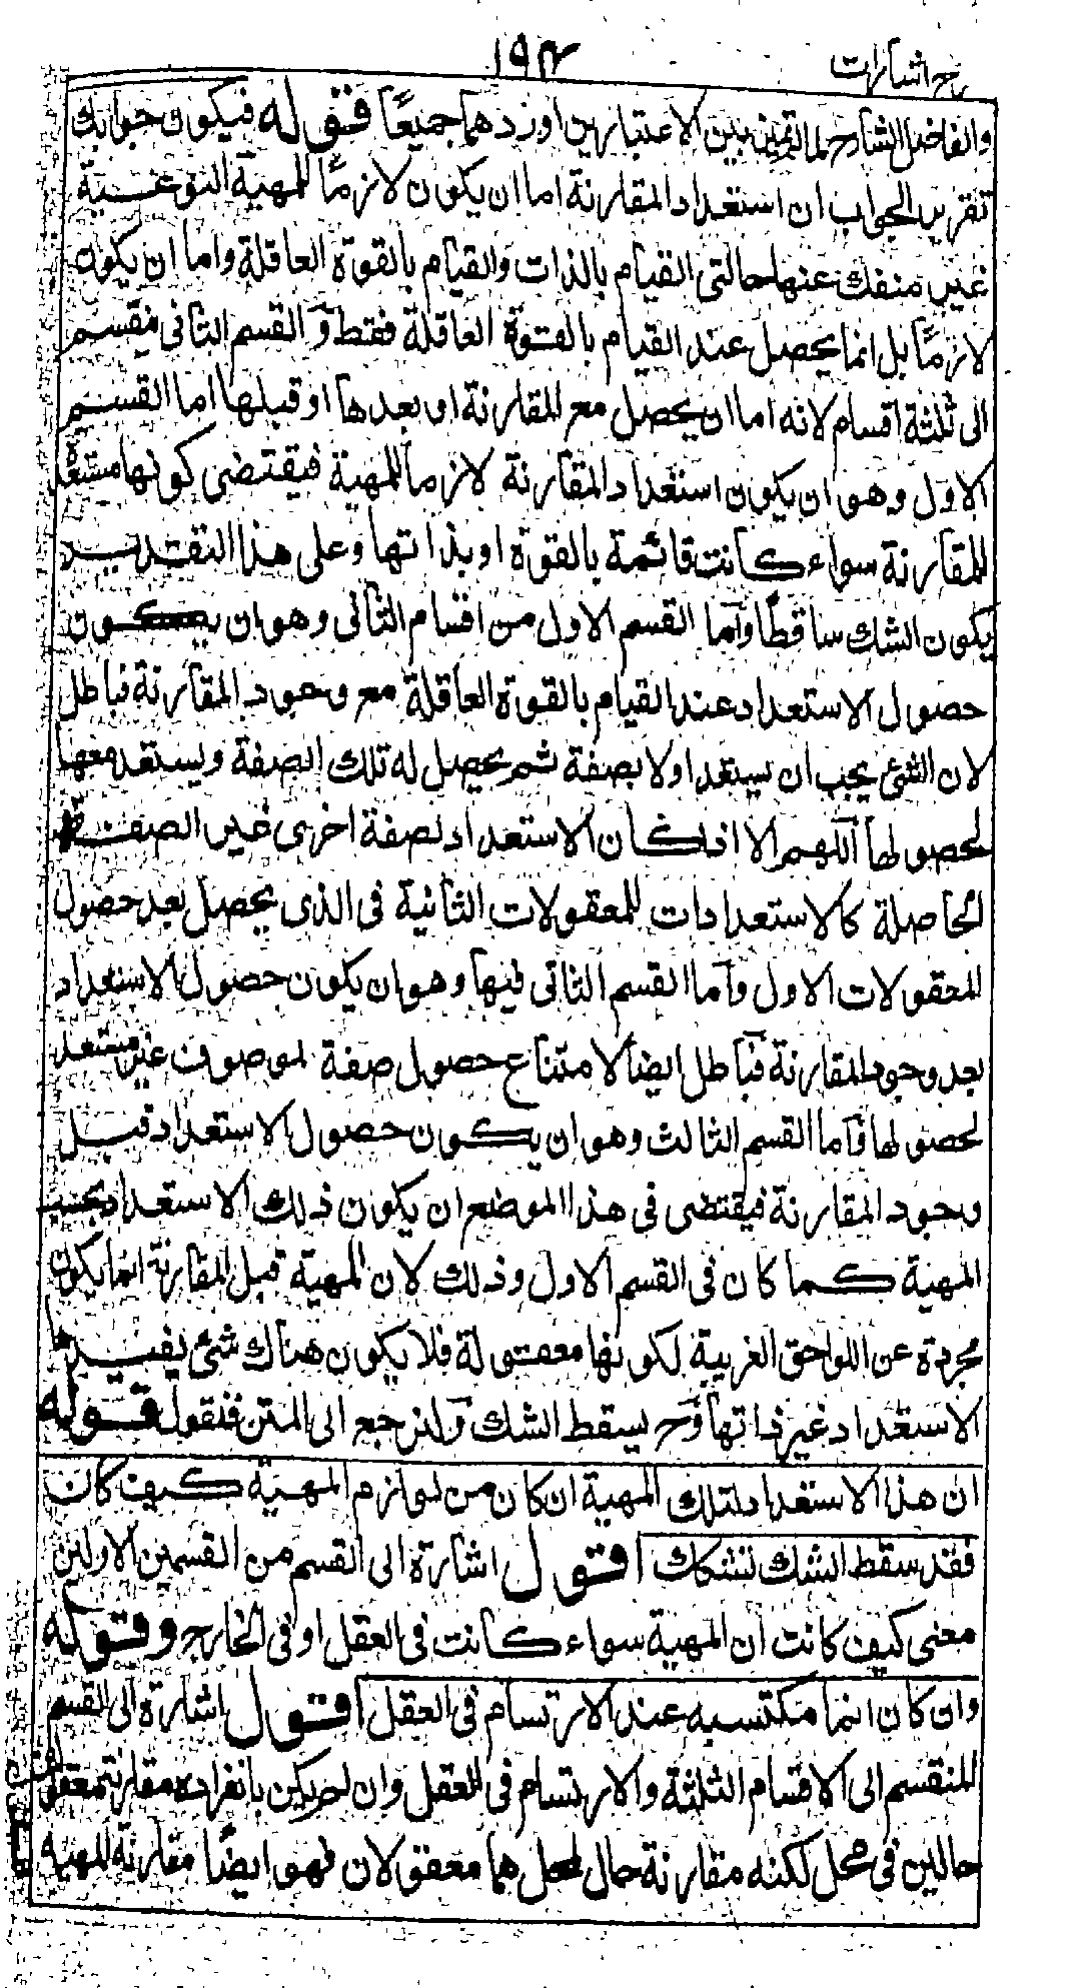 شرح اشارات
١٩٣
والفاضل الشارح لما لم يميز بين الاعتبارين اوردهما جميعًا فقوله فيكون جوابك
تقرير الجواب ان استعداد المقارنة اما ان يكون لازمًا للمهية النوعية
غير منفك عنها حالتى القيام بالذات والقيام بالقوة العاقلة واما ان يكون
لازمًا بل انما يحصل عند القيام بالقوة العاقلة فقط و القسم الثانى ينقسم
الى ثلثة اقسام لانه اما ان يحصل مع المقارنة او بعدها او قبلها اما القسم
الاول وهو ان يكون استعداد المقارنة لازما للمهية فيقتضى كونها مستعدة
للمقارنة سواء كانت قائمة بالقوة او بذاتها وعلى هذا التقدير
يكون الشك ساقطًا واما القسم الاول من اقسام الثانى وهو ان يكون
حصول الاستعداد عند القيام بالقوة العاقلة مع وجود المقارنة فباطل
لان الشئ يجب ان يستعد اولا بصفة ثم يحصل له تلك الصفة ويستعد معها
لحصولها اللهم الا اذا كان الاستعداد لصفة اخرى غير الصفة
الحاصلة كالاستعدادات للمعقولات الثانية فى الذى يحصل بعد حصول
المعقولات الاول واما القسم الثانى فيها وهو ان يكون حصول الاستعداد
بعد وجود المقارنة فباطل ايضا لامتناع حصول صفة لموصوف غير مستعد
لحصولها واما القسم الثالث وهو ان يكون حصول الاستعداد قبل
وجود المقارنة فيقتضى فى هذا الموضع ان يكون ذلك الاستعداد بحسب
المهية كما كان فى القسم الاول وذلك لان المهية قبل المقارنة انما يكون
مجردة عن اللواحق الغريبة لكونها معقولة فلا يكون هناك شئ يفيدها
الاستعداد غير ذاتها وح يسقط الشك ولنرجع الى المتن فنقول قوله
ان هذا الاستعداد لتلك المهية ان كان من لوازم المهية كيف كان
فقد سقط الشك تشكك اقول اشارة الى القسم من القسمين الاولين
معنى كيف كانت ان المهية سواء كانت فى العقل او فى الخارج وقوله
وان كان انما مكتسبه عند الارتسام فى العقل اقول اشارة الى القسم
المنقسم الى الاقسام الثلثة والارتسام فى العقل وان لم يكن بانفراده مقارنته معقولين
حالين فى محل لكنه مقارنة حال لمحل هما معقولان فهو ايضًا مقارنة المهية